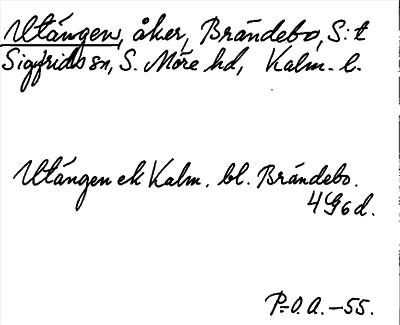 Utängen, åker, Brändebo, S:t
Sigfrids sn, S. Möre hd, Kalm. l.
Utängen ek Kalm. bl. Brändebo.
4 G6 d.
P-O.A. -55.